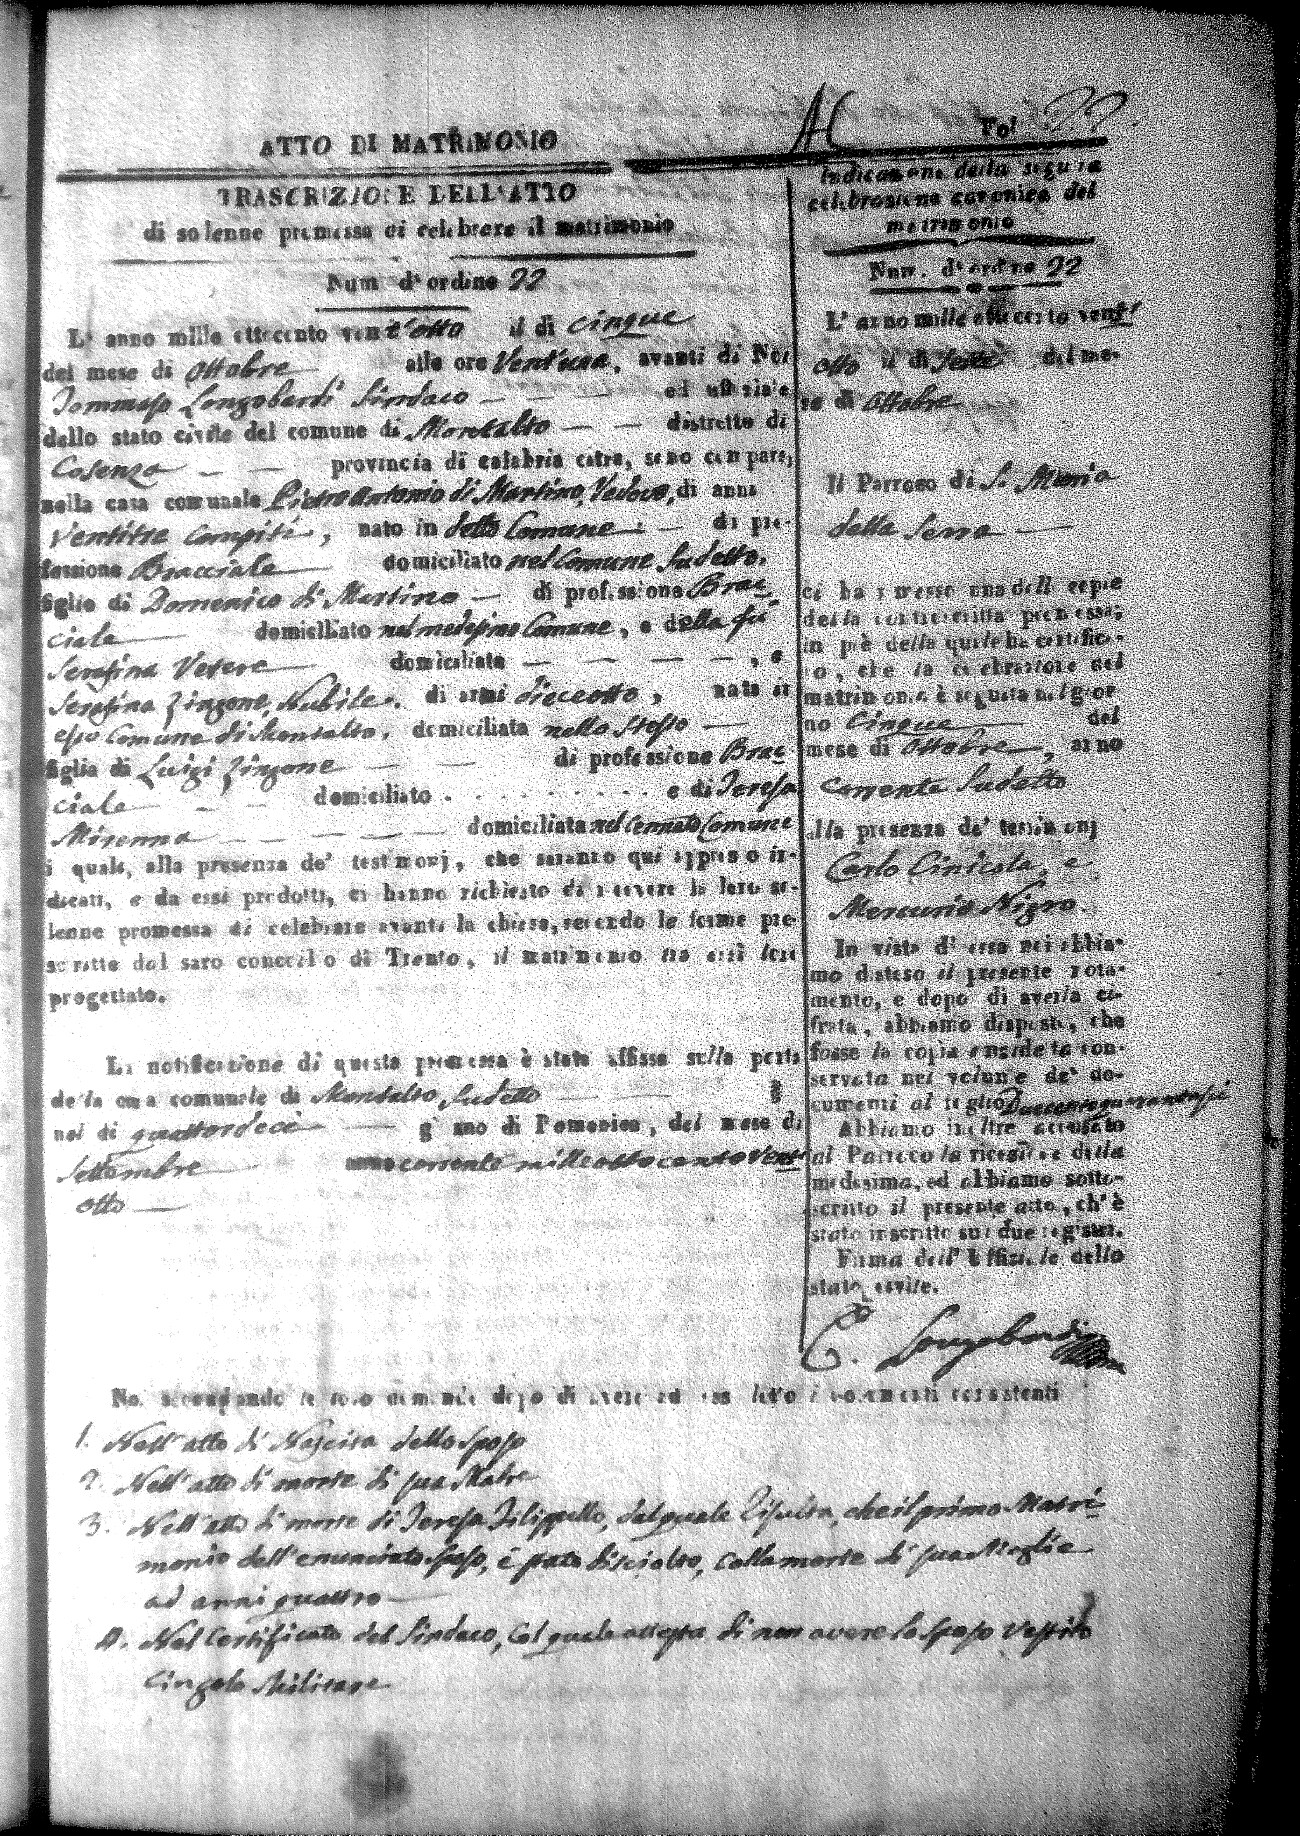 ATTO DI MATRIMONIO
TRASCRIZIONE DELL'ATTO
di solenne promessa di celebrare il matrimonio
Num d'ordine 22
L' anno mille ottocento vent'otto il di cinque
del mese di Ottobre alle ore Vent'una, avanti di Noi
Tommaso Longobardi Sindaco — — — ed uffiziale
dello stato civile del comune di Montalto — — distretto di
Cosenza — — provincia di calabria citra, sono comparsi
nella casa comunale Pietro Antonio di Martino, Vedovo, di anni
Ventitre compiti, nato in detto Comune — di pro-
fessione Bracciale domiciliato nel Comune Sudetto.
figlio di Domenico di Martino — di professione Brac
ciale domiciliato nel medesimo Comune, e della fù
Serafina Vetere domiciliata — — — — , e
Serafina Zingone, Nubile. di anni dieciotto, nata in
esso Comune di Montalto, domiciliata nello Stesso —
figlia di Luigi Zingone — — di professione Brac
ciale — — domiciliato . . . . . . . . . e di Teresa
Mirenna — — — — domiciliata nel Cennato Comune
i quali, alla presenza de' testimonj, che saranno qui appresso in-
dicati, e da essi prodotti, ci hanno richiesto di ricevere la loro so-
lenne promessa di celebrare avanti la chiesa, secondo le forme pre-
scritte dal sacro concilio di Trento, il matrimonio tra essi loro
progettato.
La notificazione di questa promessa è stata affissa sulla porta
della casa comunale di Montalto Sudetto — —
nel di quattordeci — giorno di Domenica, del mese di
Settembre anno corrente mille ottocento vent'
otto —
Fol 22
Indicazione della seguita
celebrazione canonica del
matrimonio
Num. d'ordine 22
L' anno mille ottocento vent'
otto il di Sette del me-
se di Ottobre
Il Parroco di S. Maria
della Serra —
ci ha rimesso una delle copie
della controscritta promessa,
in piè della quale ha certifica-
to, che la celebrazione del
matrimonio è seguita nel gior
no Cinque del
mese di Ottobre, anno
Corrente Sudetto
alla presenza de' testimonj
Carlo Cinicola, e
Mercurio Nigro.
In vista di essa noi abbia-
mo disteso il presente nota-
mento, e dopo di averla ci-
frata, abbiamo disposto, che
fosse la copia anzidetta con-
servata nel volume de' do-
cumenti al foglio
Abbiamo inoltre accusato
al Parroco la ricezione della
medesima, ed abbiamo sotto-
scritto il presente atto, ch'è
stato inscritto sui due registri.
Firma dell'Uffiziale dello
stato civile.
Longobardi
Noi secondando le loro dimande dopo di avere ad essi letto i documenti consistenti
1. Nell'atto di Nascita dello Sposo
2. Nell'atto di morte di sua Madre
3. Nell'atto di morte di Teresa Filippello, dal quale Risulta, che il primo Matri
monio dell'enunciato Sposo, è stato disciolto, colla morte di sua Moglie
ad anni quattro —
4. Nel Certificato del Sindaco, col quale attesta di non avere lo Sposo Vestito
Cingolo Militare